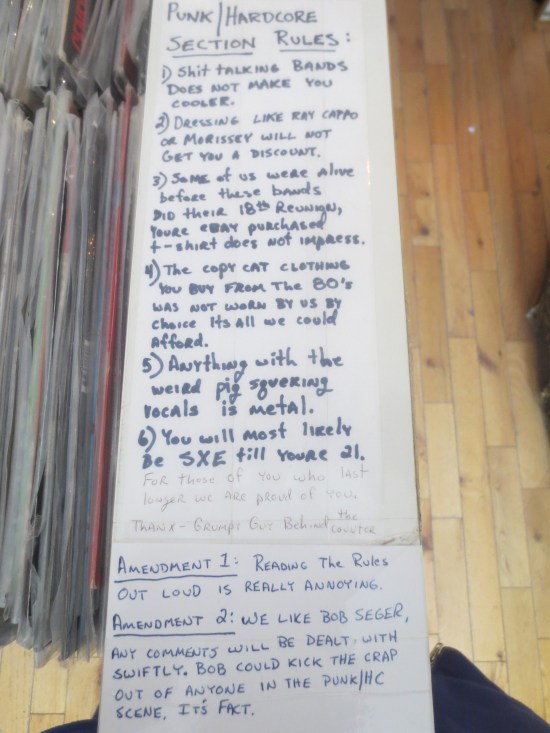 PUNK/HARDCORE
SECTION RULES:
1) Shit TALKING BANDS
DOES NOT MAKE YOU
COOLER.
2) DRESSING LIKE RAY CAPPO
OR MORISSEY WILL NOT
GET YOU A DISCOUNT.
3) SOME of US weRe Alive
before these bands
DID their 18th Reunion,
YOURe eBAY purchased
t-shirt does not impress.
4) The copY CAT CLOTHING
YOU BUY FROM The 80's
WAS NOT WORN BY US BY
choice Its All we could
Afford.
5) ANYthing with the
weird pig squering
vocals is metal.
6) You will most likely
Be SXE till YOURe 21.
FOR those of YOU who last
longer we ARe proud of YOU.
THANX - GRUMPY GUY Behind the
COUNTER
AMENDMENT 1: READING The RULES
OUT LOUD IS REALLY ANNOYING.
AMENDMENT 2: WE LIKE BOB SEGER,
ANY COMMENTS WILL BE DEALT WITH
SWIFTLY. BOB COULD KICK THE CRAP
OUT OF ANYONE IN THE PUNK/HC
SCENE, ITS FACT.